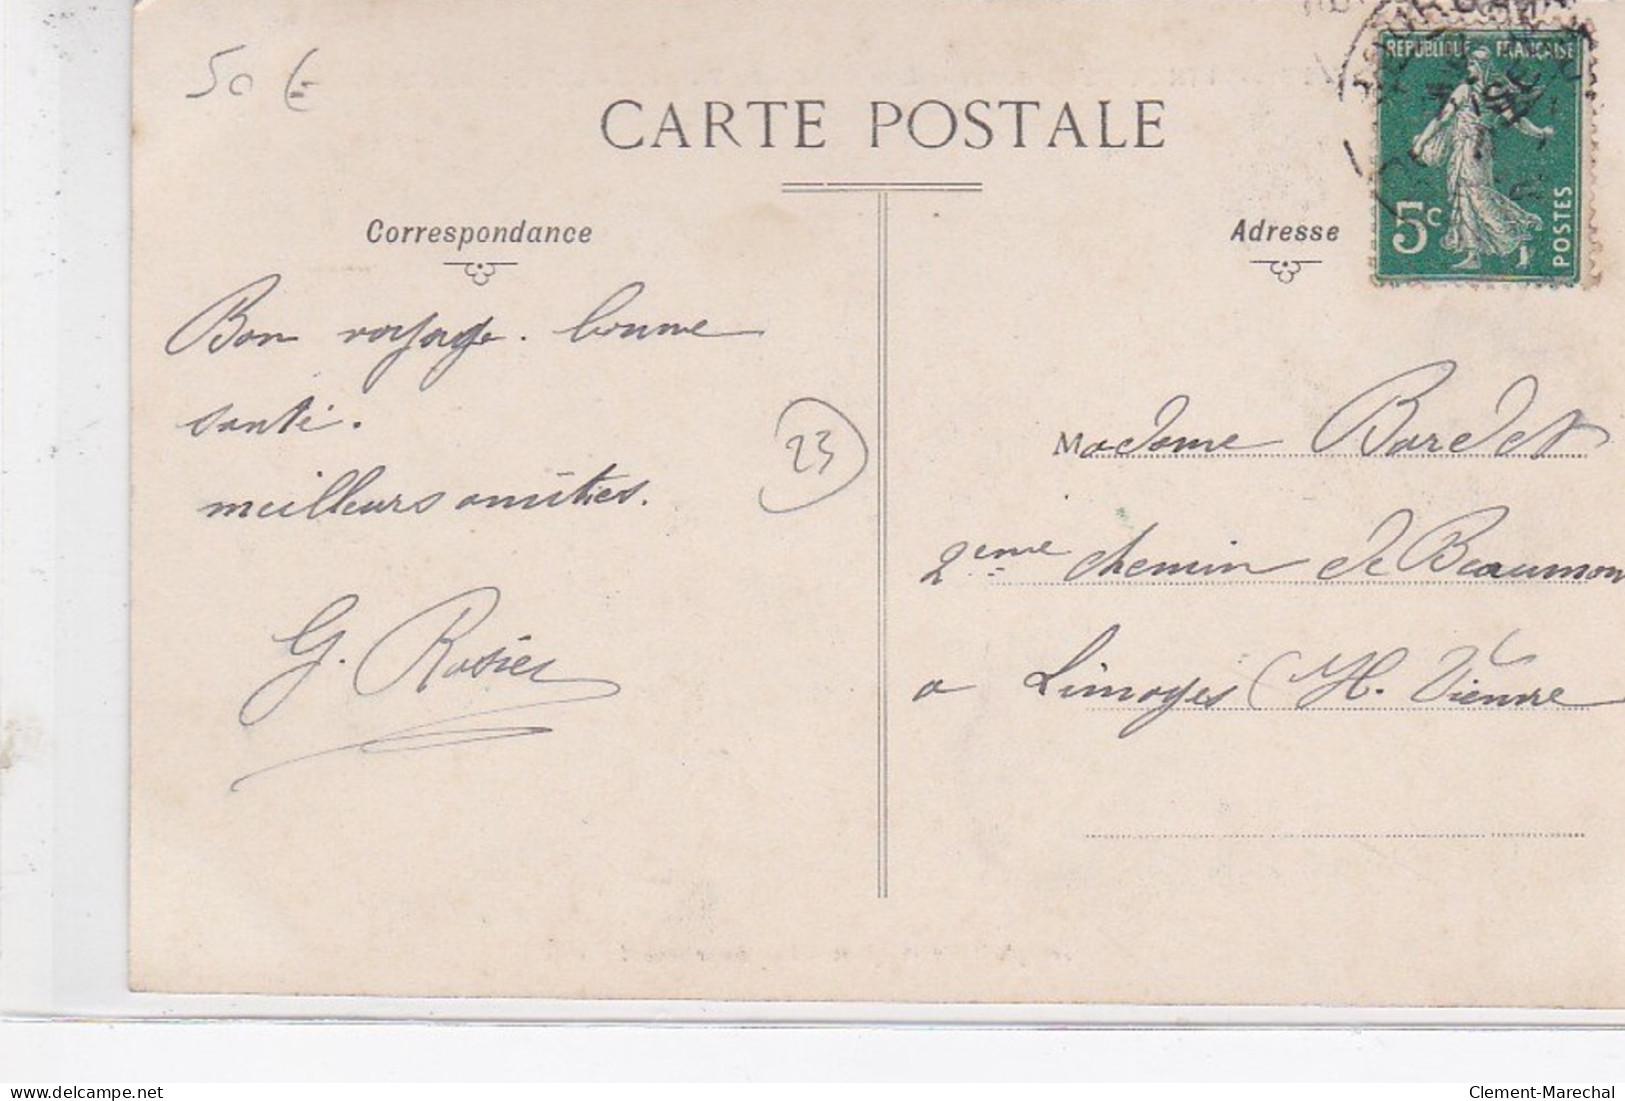 50 €
CARTE POSTALE
Correspondance
Adresse
REPUBLIQUE FRANÇAISE
5c
POSTES
Bon voyage. bonne
santé.
meilleurs amitiés.
G. Rosier
23
Madame Bardet
2eme chemin de Beaumon
a Limoges (H. Vienne
Clement-Marechal